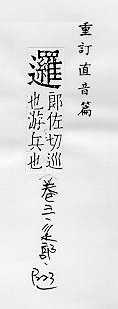 重訂直音篇
邏
郎佐切巡
也游兵也
卷五·辵部·